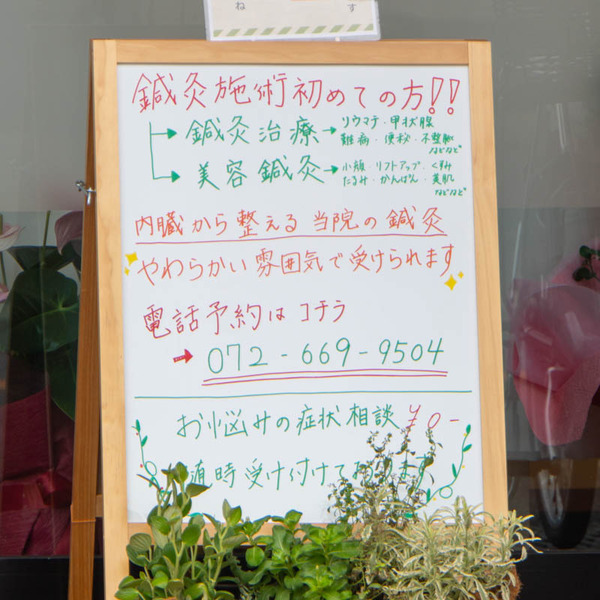 ね す
鍼灸施術初めての方!!
鍼灸治療→リウマチ・甲状腺
難病・便秘・不整脈
などなど
美容鍼灸→小顔・リフトアップ・くすみ
たるみ・かんぱん・美肌
などなど
内臓から整える当院の鍼灸
やわらかい雰囲気で受けられます
電話予約はコチラ
→072-669-9504
お悩みの症状相談¥0-
随時受け付けております